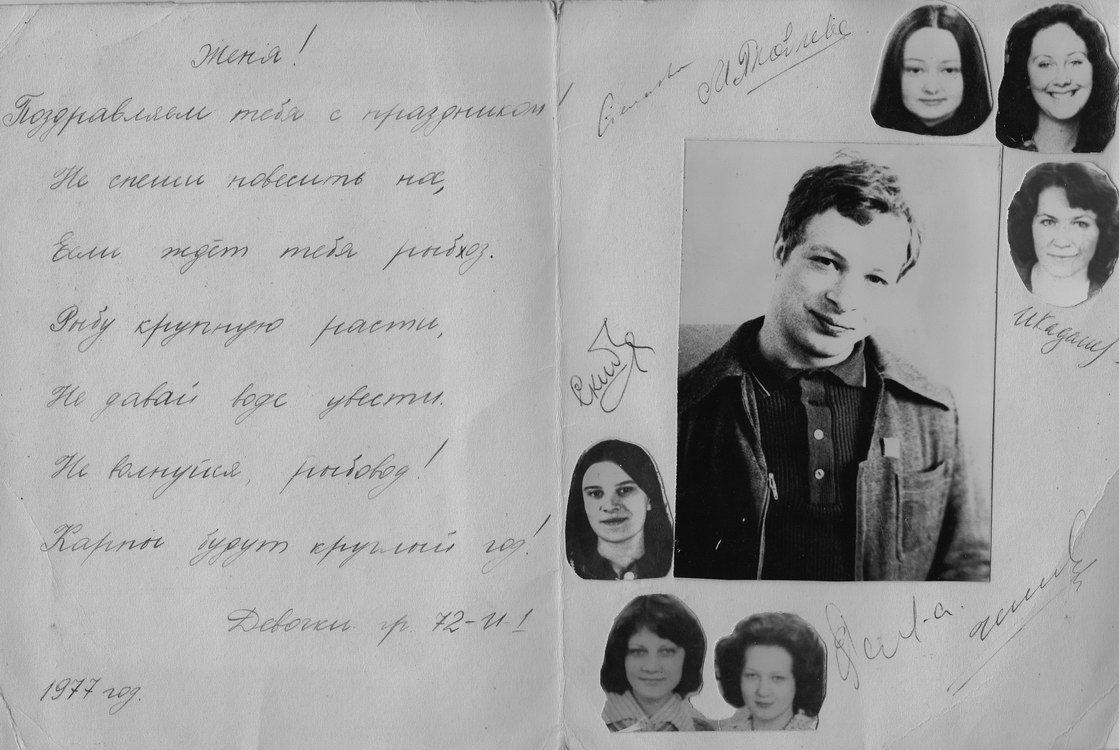 Женя!
Поздравляем тебя с праздником!
Не спеши повесить нос,
Если ждёт тебя рыбхоз.
Рыбу крупную расти,
Не давай воде увести.
Не волнуйся, рыбовод!
Карпы будут круглый год!
Девочки гр. 72-И-1
1977 год.
М.Яковлева